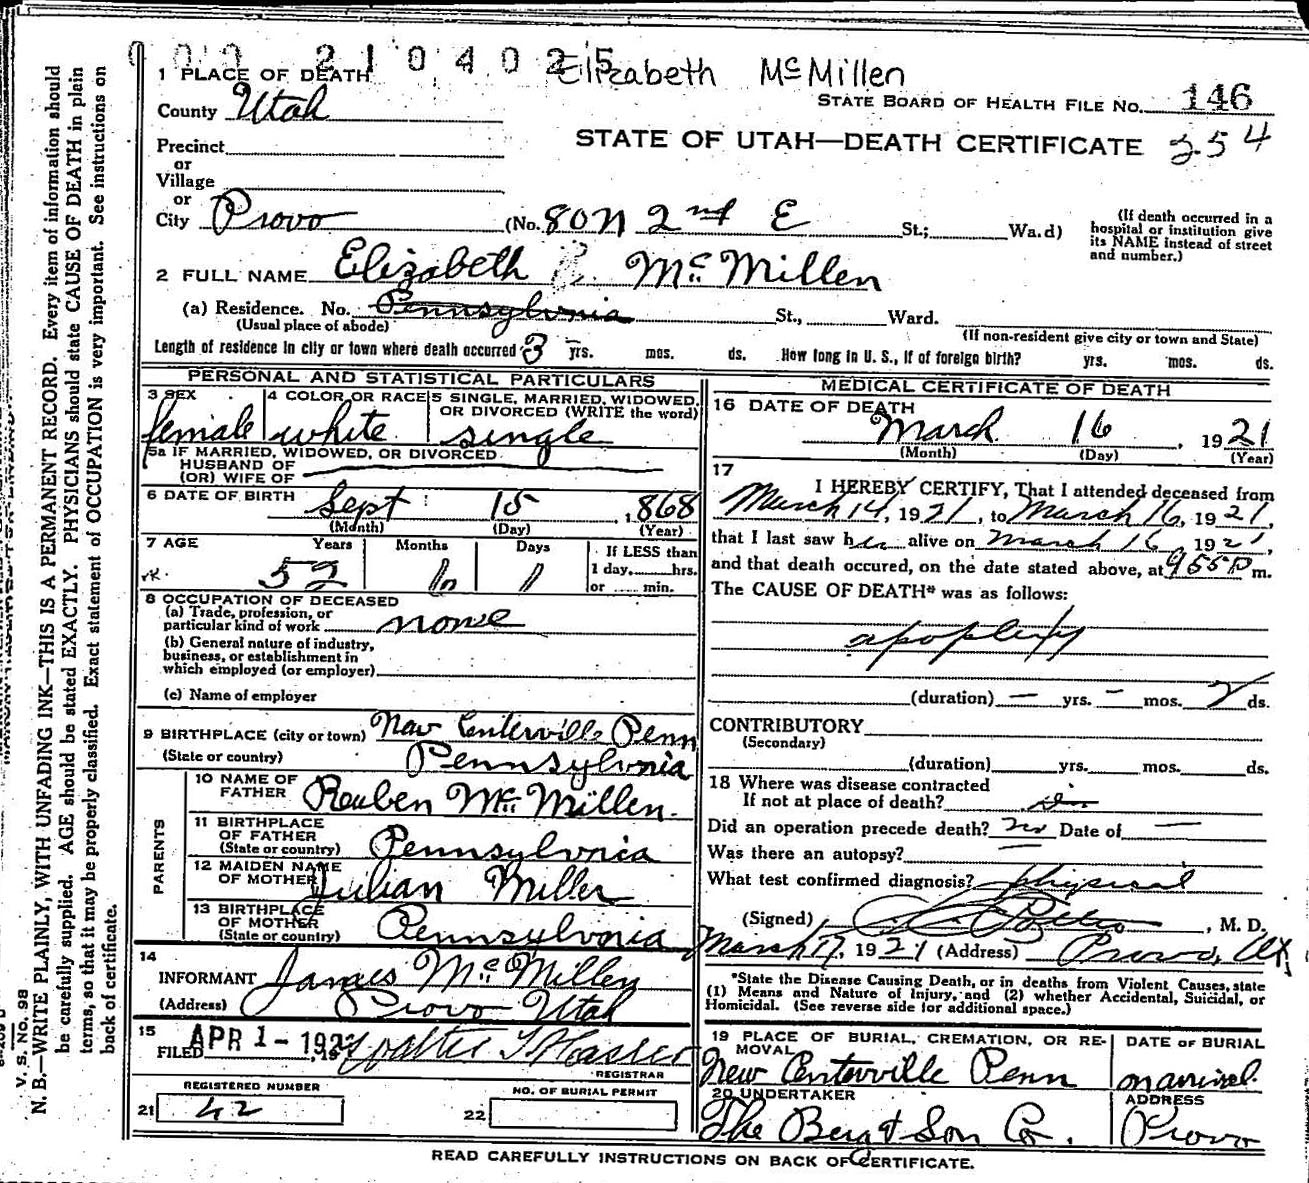 000 2104025
Elizabeth McMillen
1 PLACE OF DEATH
STATE BOARD OF HEALTH FILE No. 146
County Utah
STATE OF UTAH—DEATH CERTIFICATE 254
Precinct
or
Village
or
City Provo (No. 80 N 2nd E St.; Wa.d)
(If death occurred in a hospital or institution give its NAME instead of street and number.)
2 FULL NAME Elizabeth McMillen
(a) Residence. No. Pennsylvania St., Ward.
(Usual place of abode) (If non-resident give city or town and State)
Length of residence in city or town where death occurred 3 yrs. mos. ds. How long in U. S., if of foreign birth? yrs. mos. ds.
PERSONAL AND STATISTICAL PARTICULARS
3 SEX female
4 COLOR OR RACE white
5 SINGLE, MARRIED, WIDOWED, OR DIVORCED (WRITE the word) single
5a IF MARRIED, WIDOWED, OR DIVORCED
HUSBAND OF
(OR) WIFE OF
6 DATE OF BIRTH Sept 15, 1868
(Month) (Day) (Year)
7 AGE Years Months Days If LESS than
52 1 day, hrs.
or min.
8 OCCUPATION OF DECEASED
(a) Trade, profession, or
particular kind of work none
(b) General nature of industry,
business, or establishment in
which employed (or employer)
(c) Name of employer
9 BIRTHPLACE (city or town) New Centerville Penn
(State or country) Pennsylvania
PARENTS
10 NAME OF FATHER Reuben McMillen.
11 BIRTHPLACE OF FATHER
(State or country) Pennsylvania
12 MAIDEN NAME OF MOTHER Julian Miller
13 BIRTHPLACE OF MOTHER
(State or country) Pennsylvania
14
INFORMANT James McMillen
(Address) Provo Utah
15
FILED APR 1 - 192
REGISTRAR
REGISTERED NUMBER
21 42
NO. OF BURIAL PERMIT
22
MEDICAL CERTIFICATE OF DEATH
16 DATE OF DEATH
March 16, 1921
(Month) (Day) (Year)
17
I HEREBY CERTIFY, That I attended deceased from
March 14, 1921, to March 16, 1921,
that I last saw her alive on March 16, 1921,
and that death occured, on the date stated above, at 955P m.
The CAUSE OF DEATH* was as follows:
apoplexy
(duration) — yrs. — mos. 2 ds.
CONTRIBUTORY
(Secondary)
(duration) yrs. mos. ds.
18 Where was disease contracted
If not at place of death?
Did an operation precede death? no Date of —
Was there an autopsy?
What test confirmed diagnosis? physical
(Signed) , M. D.
March 17, 1921 (Address) Provo, Ut
*State the Disease Causing Death, or in deaths from Violent Causes, state
(1) Means and Nature of Injury, and (2) whether Accidental, Suicidal, or
Homicidal. (See reverse side for additional space.)
19 PLACE OF BURIAL, CREMATION, OR REMOVAL
New Centerville Penn
DATE OF BURIAL
20 UNDERTAKER
The Berg & Son Co.
ADDRESS
Provo
READ CAREFULLY INSTRUCTIONS ON BACK OF CERTIFICATE.
V. S. No. 98
N. B.—WRITE PLAINLY, WITH UNFADING INK—THIS IS A PERMANENT RECORD. Every item of information should
be carefully supplied. AGE should be stated EXACTLY. PHYSICIANS should state CAUSE OF DEATH in plain
terms, so that it may be properly classified. Exact statement of OCCUPATION is very important. See instructions on
back of certificate.